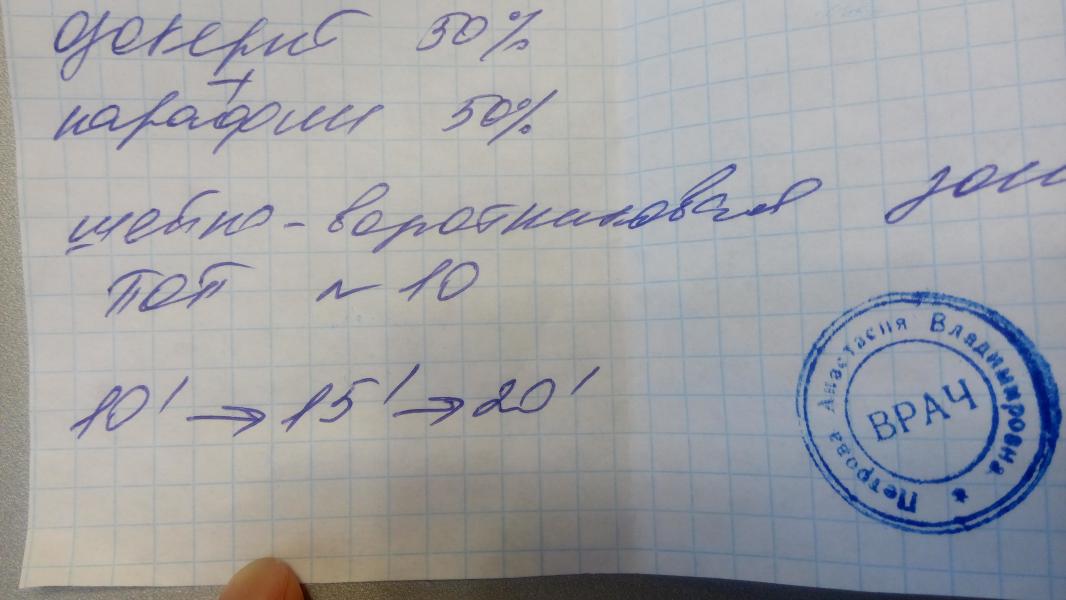 Озокерит 50%
+
парафин 50%
шейно-воротниковая зон
ПОП ~ 10
10' → 15' → 20'
Петрова Анастасия Владимировна *
ВРАЧ